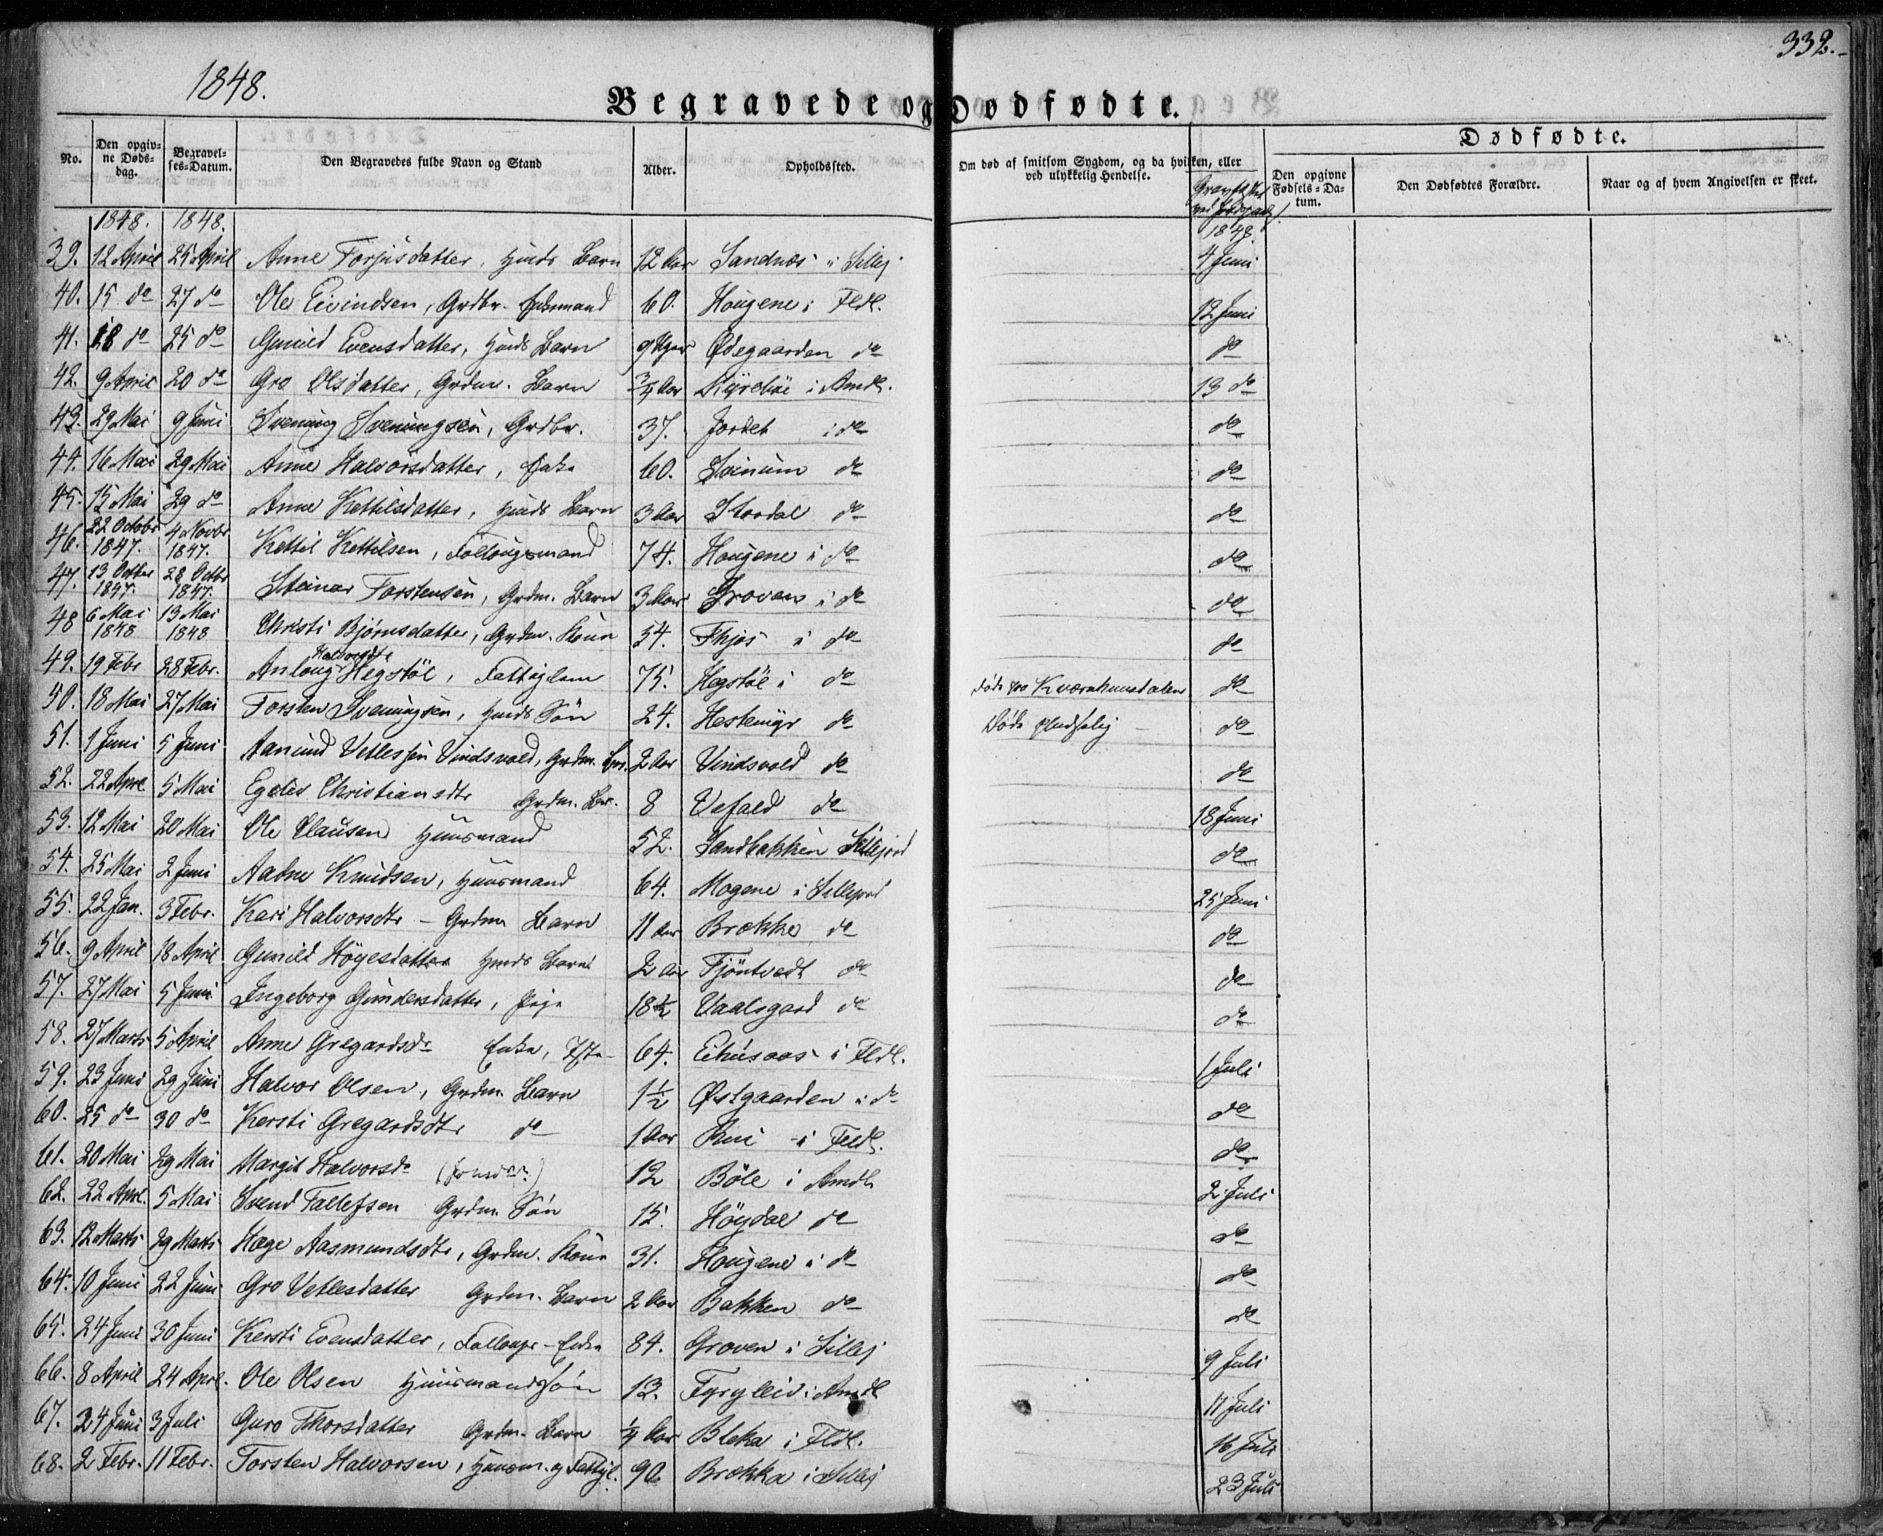 332.
1848.
Begravede og Dødfødte.
No.
Den opgivne Dødsdag.
Begravelses-Datum.
Den Begravedes fulde Navn og Stand
Alder.
Opholdssted.
Om død af smitsom Sygdom, og da hvilken, eller ved ulykkelig Hendelse.
Dødfødte.
Den opgivne Fødsels-Datum.
Den Dødfødtes Forældre.
Naar og af hvem Angivelsen er skeet.
1848. 1848. 1848.
39. 12 April 25 April Anne Torjusdatter, Huds Barn 12 Aar Sandnæs i Sillej 4 Juni
40. 15 do 27 do Ole Eivindsen, Grdbr. Enkemand 60. Haugene i Fldl. 12 Juni
41. 18 do 25 do Gunild Evensdatter, Huds Barn 9 Uger Ødegaarden do do
42. 9 April 20 do Gro Olsdatter, Grdm. Barn 3/4 Aar Kyrebøe i Amdl. 13 do
43. 29 Mai 9 Juni Svenung Svenungsen, Grdbr. 37. Jordet i do do
44. 16 Mai 29 Mai Anne Halvorsdatter, Enke 60. Svinum do do
45. 15 Mai 29 do Anne Kettilsdatter, Huds Barn 3 Aar Stordal do do
46. 22 Octobr 1847. 4 Novbr 1847. Kettil Kettilsen, Follougsmand 74. Haugene i do do
47. 13 Octbr 1847. 28 Octbr 1847. Steinar Torstensen, Grdm. Barn 3 Aar Grovan i do do
48 6 Mai 1848 13 Mai 1848 Christi Bjørnsdatter, Grdm. Kone 34. i do do
49. 19 Febr 28 Febr. Anloug Halvorsdtr Hegstöl, Fattiglem 75. Hegstöl i do do
50. 18 Mai 27 Mai Torsten Svenungsen, Huds Sön 24. Hestemyr do Døde pludselig do
51. 1 Juni 5 Juni Aanund Vetlessen Vindsvold, Grdm. Brn. 2 Aar Vindsvold do do
52. 22 Aprl 5 Mai Egelev Christiansdtr Grdm. Br. 8 Vefald do 18 Juni
53. 12 Mai 20 Mai Ole Clausen Huusmand 52. Sandbakken Sillejord do
54. 25 Mai 2 Juni Aadne Knudsen, Huusmand 64. Mogene i Sillejord 25 Juni
55. 22 Jan. 3 Febr. Kari Halvorsdtr – Grdm Barn 11 Aar Brække do do
56. 9 April 18 April Gunild Høyesdatter Huds Barn 2 Aar Tjöntvedt do do
57. 27 Mai 5 Juni Ingeborg Gundersdatter, Pige 18 1/2 Vaalsgard do do
58. 27 Marts 5 April Anne Gregardsdr Enke, 64. i Fldl. 1 Juli
59. 23 Juni 29 Juni Halvor Olsen, Grdm. Barn 1 1/2 Østgaarden i do do
60. 25 do 30 do Kersti Gregardsdtr do 1 Aar i Fldl. do
61. 20 Mai 29 Mai Margit Halvorsdr 12 Böle i Amdl 2 Juli
62. 22 Aprl. 5 Mai Svend Tallefsen Grdm. Sön 15. Höydal do do
63. 12 Marts 29 Marts Hæge Aasmundsdtr, Grdm. Kone 31. Haugene i do do
64. 10 Juni 22 Juni Gro Vetlesdatter Grdm. Barn 2 Aar Bakken do do
65. 24 Juni 30 Juni Kersti Evensdatter, Follougs-Enke 84. Groven i Sillej 9 Juli
66. 8 April 24 Aprl. Ole Olsen Huusmandssøn 13. Tyrylid i Amdl 11 Juli
67. 24 Juni 3 Juli Guro Thorsdatter Grdm. Barn 1/4 Aar Bleka i Fldl. 16 Juli
68. 2 Febr. 11 Febr. Torsten Halvorsen, Huusm. og Fattigl. 90 Brækka i Sillej 23 Juli